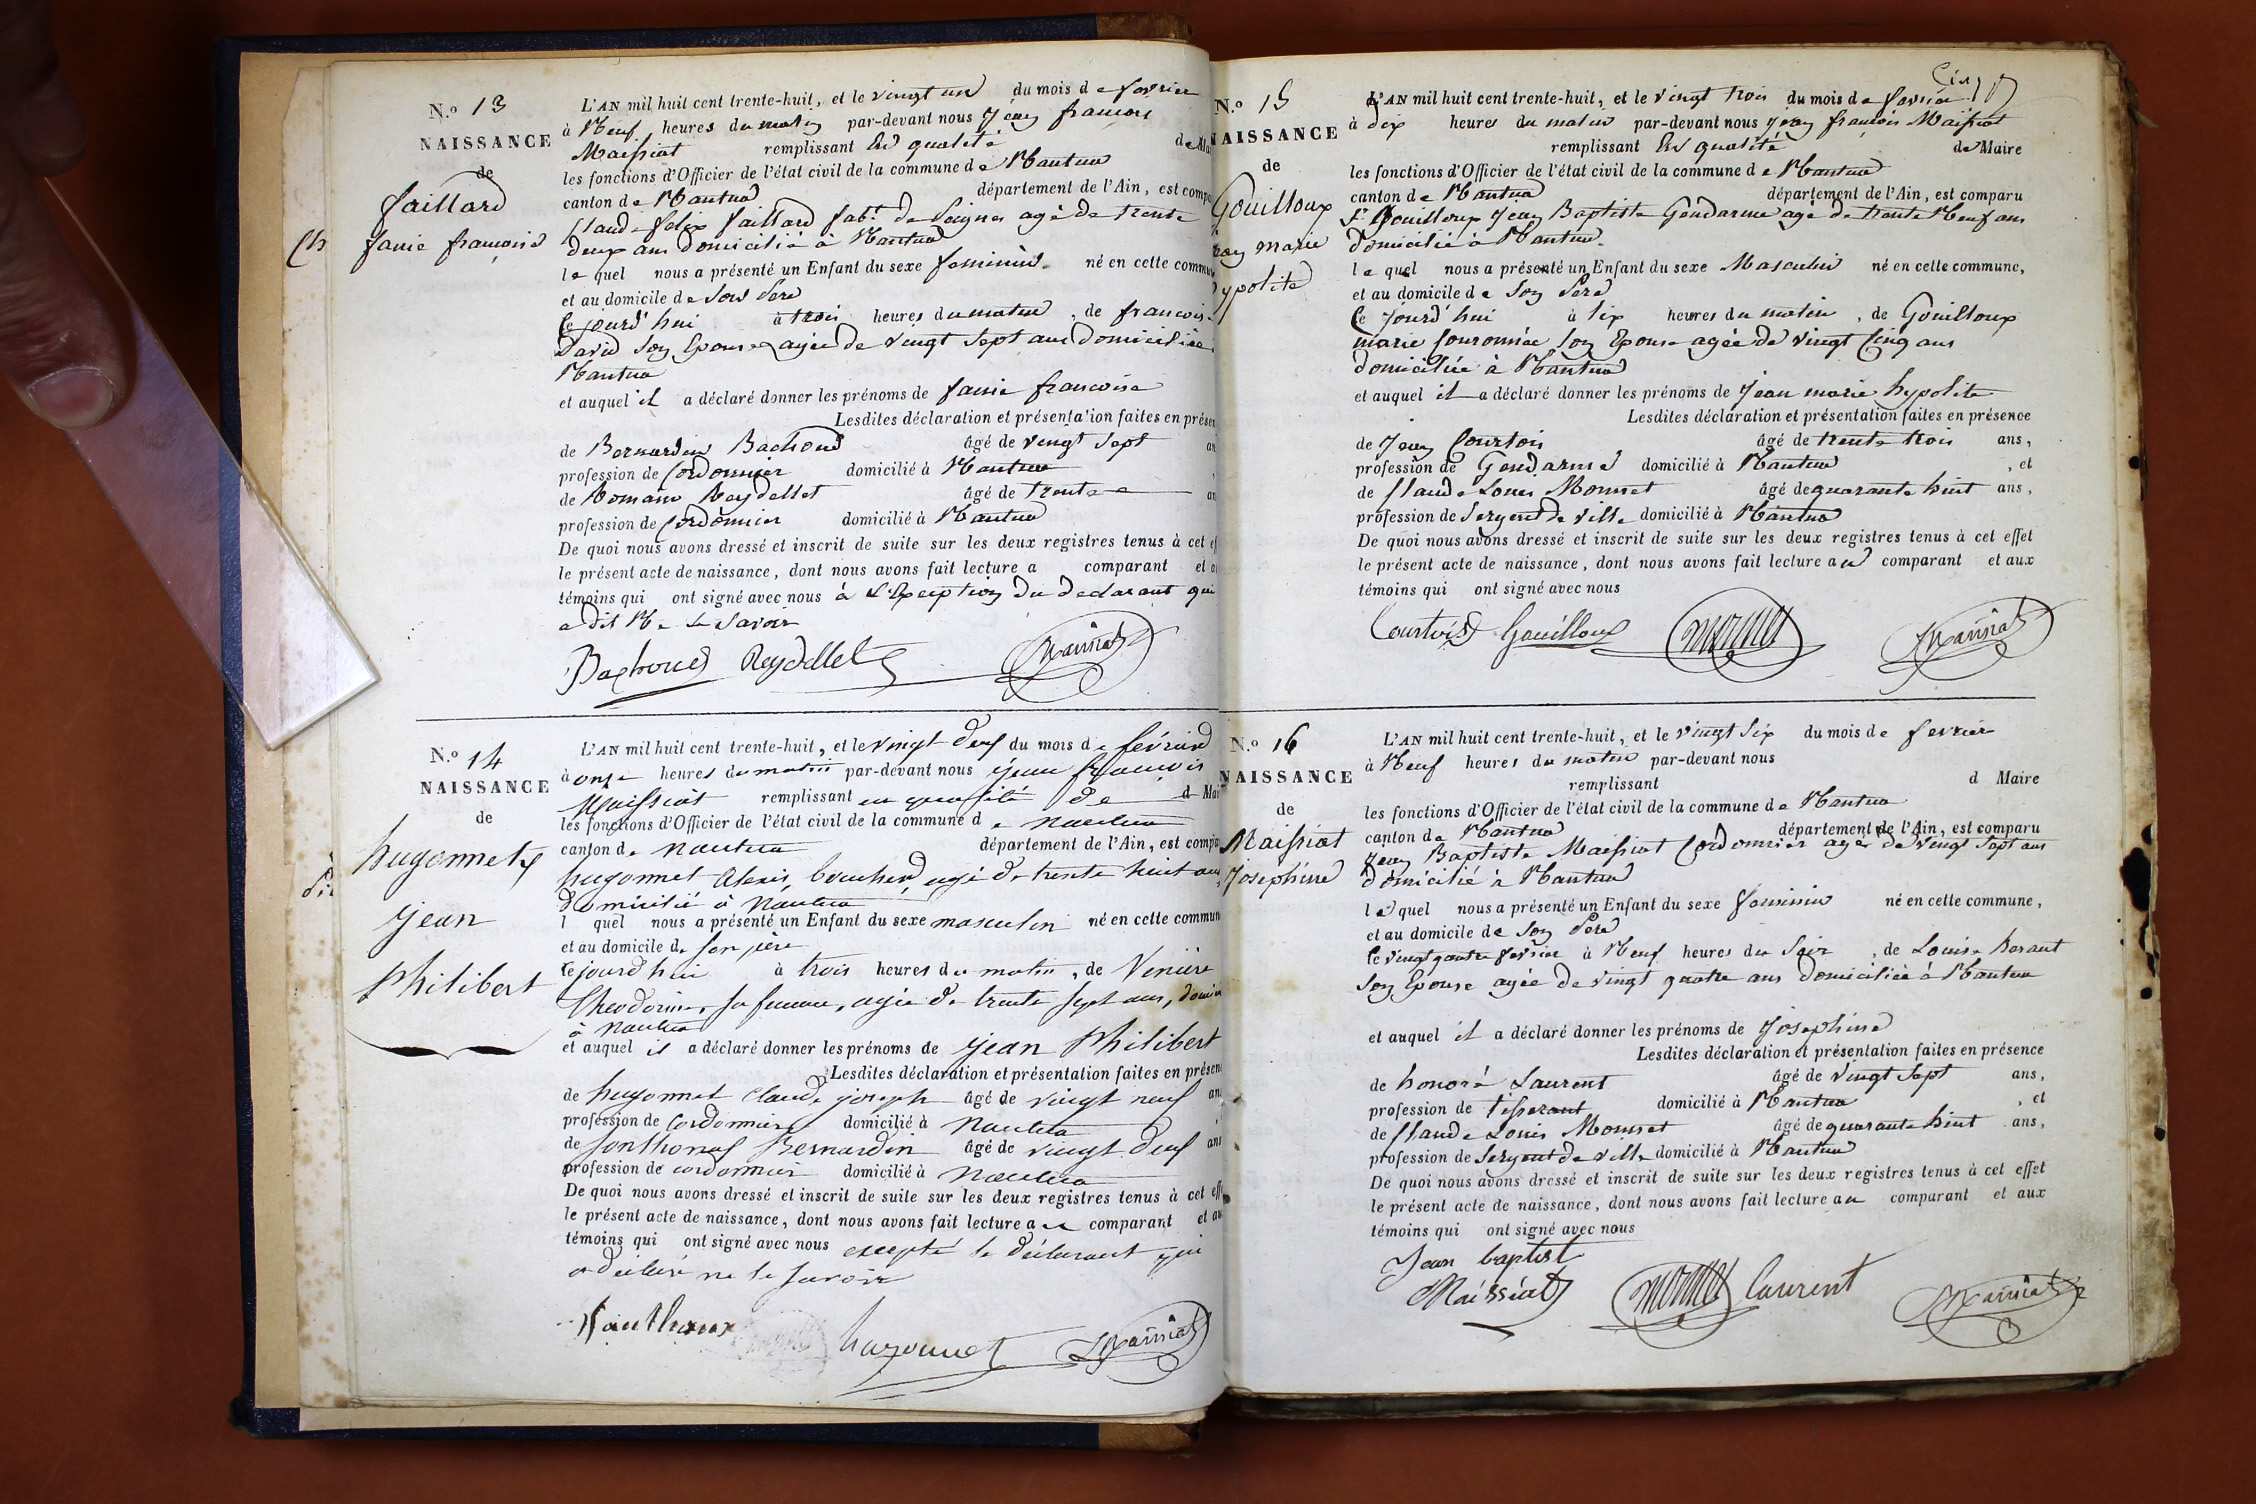 N.o 13
NAISSANCE
de
faillard
fanie françoise
L'AN mil huit cent trente-huit, et le vingt un du mois de fevrier
à Neuf heures du matin par-devant nous Jean françois
Maissiat remplissant En qualité de Ma
les fonctions d'Officier de l'état civil de la commune de Nantua
canton de Nantua département de l'Ain, est compa
Claude felix faillard fabt. de Peignes agé de trente
deux ans domicilié à Nantua
le quel nous a présenté un Enfant du sexe feminin né en cette commune
et au domicile de son Pere
Ce jourd'hui à trois heures du matin, de francoise
David Son Epouse agée de vingt Sept ans domiciliée
Nantua
et auquel il a déclaré donner les prénoms de fanie francoise
Lesdites déclaration et présentation faites en présen
de Bernardin Bachoud âgé de vingt Sept an
profession de Cordonnier domicilié à Nantua
de Romain Reydellet âgé de trente an
profession de Cordonnier domicilié à Nantua
De quoi nous avons dressé et inscrit de suite sur les deux registres tenus à cet ef
le présent acte de naissance, dont nous avons fait lecture a comparant et a
témoins qui ont signé avec nous à L'Exception du declarant qui
a dit Ne le Savoir
Bachoud Reydellet Maissiat
N.o 14
NAISSANCE
de
hugonnet
jean
Philibert
L'AN mil huit cent trente-huit, et le vingt deux du mois de février
à onze heures du matin par-devant nous jean françois
Maissiat remplissant en qualité de d Mai
les fonctions d'Officier de l'état civil de la commune de nantua
canton de nantua département de l'Ain, est compa
hugonnet Alexis, boucher, agé de trente huit ans
domicilié à nantua
l quel nous a présenté un Enfant du sexe masculin né en cette commun
et au domicile de son père
cejourd'hui à trois heures du matin, de Venière
Théodorine, sa femme, agée de trente sept ans, domici
à nantua
et auquel il a déclaré donner les prénoms de jean Philibert
Lesdites déclaration et présentation faites en présen
de hugonnet claude joseph âgé de vingt neuf ans
profession de cordonnier domicilié à nantua
de Sonthonas Bernardin âgé de vingt deux ans
profession de cordonnier domicilié à nantua
De quoi nous avons dressé et inscrit de suite sur les deux registres tenus à cet eff
le présent acte de naissance, dont nous avons fait lecture au comparant et au
témoins qui ont signé avec nous excepté le déclarant qui
a déclaré ne le savoir
hugonnet Maissiat
N.o 15
NAISSANCE
de
Gouilloux
marie
ypolite
L'AN mil huit cent trente-huit, et le vingt trois du mois de fevrier
à dix heures du matin par-devant nous jean françois Maissiat
remplissant En qualité de Maire
les fonctions d'Officier de l'état civil de la commune de Nantua
canton de Nantua département de l'Ain, est comparu
Sr Gouilloux Jean Baptiste Gendarme agé de trente Neuf ans
domicilié à Nantua
le quel nous a présenté un Enfant du sexe Masculin né en cette commune,
et au domicile de Son Pere
Ce jourd'hui à six heures du matin, de Gouilloux
marie Son Epouse agée de vingt Cinq ans
domiciliée à Nantua
et auquel il a déclaré donner les prénoms de jean marie hypolite
Lesdites déclaration et présentation faites en présence
de jean Courtois âgé de trente trois ans,
profession de Gendarme domicilié à Nantua, et
de Claude Louis Mornet âgé de quarante huit ans,
profession de Sergent de ville domicilié à Nantua
De quoi nous avons dressé et inscrit de suite sur les deux registres tenus à cet effet
le présent acte de naissance, dont nous avons fait lecture au comparant et aux
témoins qui ont signé avec nous
Courtois Gouilloux Mornet Maissiat
N.o 16
NAISSANCE
de
Maissiat
Josephine
L'AN mil huit cent trente-huit, et le vingt Six du mois de fevrier
à Neuf heures du matin par-devant nous
remplissant d Maire
les fonctions d'Officier de l'état civil de la commune de Nantua
canton de Nantua département de l'Ain, est comparu
Jean Baptiste Maissiat Cordonnier agé de vingt Sept ans
domicilié à Nantua
le quel nous a présenté un Enfant du sexe feminin né en cette commune,
et au domicile de Son Pere
le vingt quatre fevrier à Neuf heures du Soir, de Louise
Son Epouse agée de vingt quatre ans domiciliée à Nantua
et auquel il a déclaré donner les prénoms de Josephine
Lesdites déclaration et présentation faites en présence
de honoré Laurent âgé de vingt Sept ans,
profession de tisserant domicilié à Nantua, et
de Claude Louis Mornet âgé de quarante huit ans,
profession de Sergent de ville domicilié à Nantua
De quoi nous avons dressé et inscrit de suite sur les deux registres tenus à cet effet
le présent acte de naissance, dont nous avons fait lecture au comparant et aux
témoins qui ont signé avec nous
Jean baptist
Maissiat Mornet laurent Maissiat